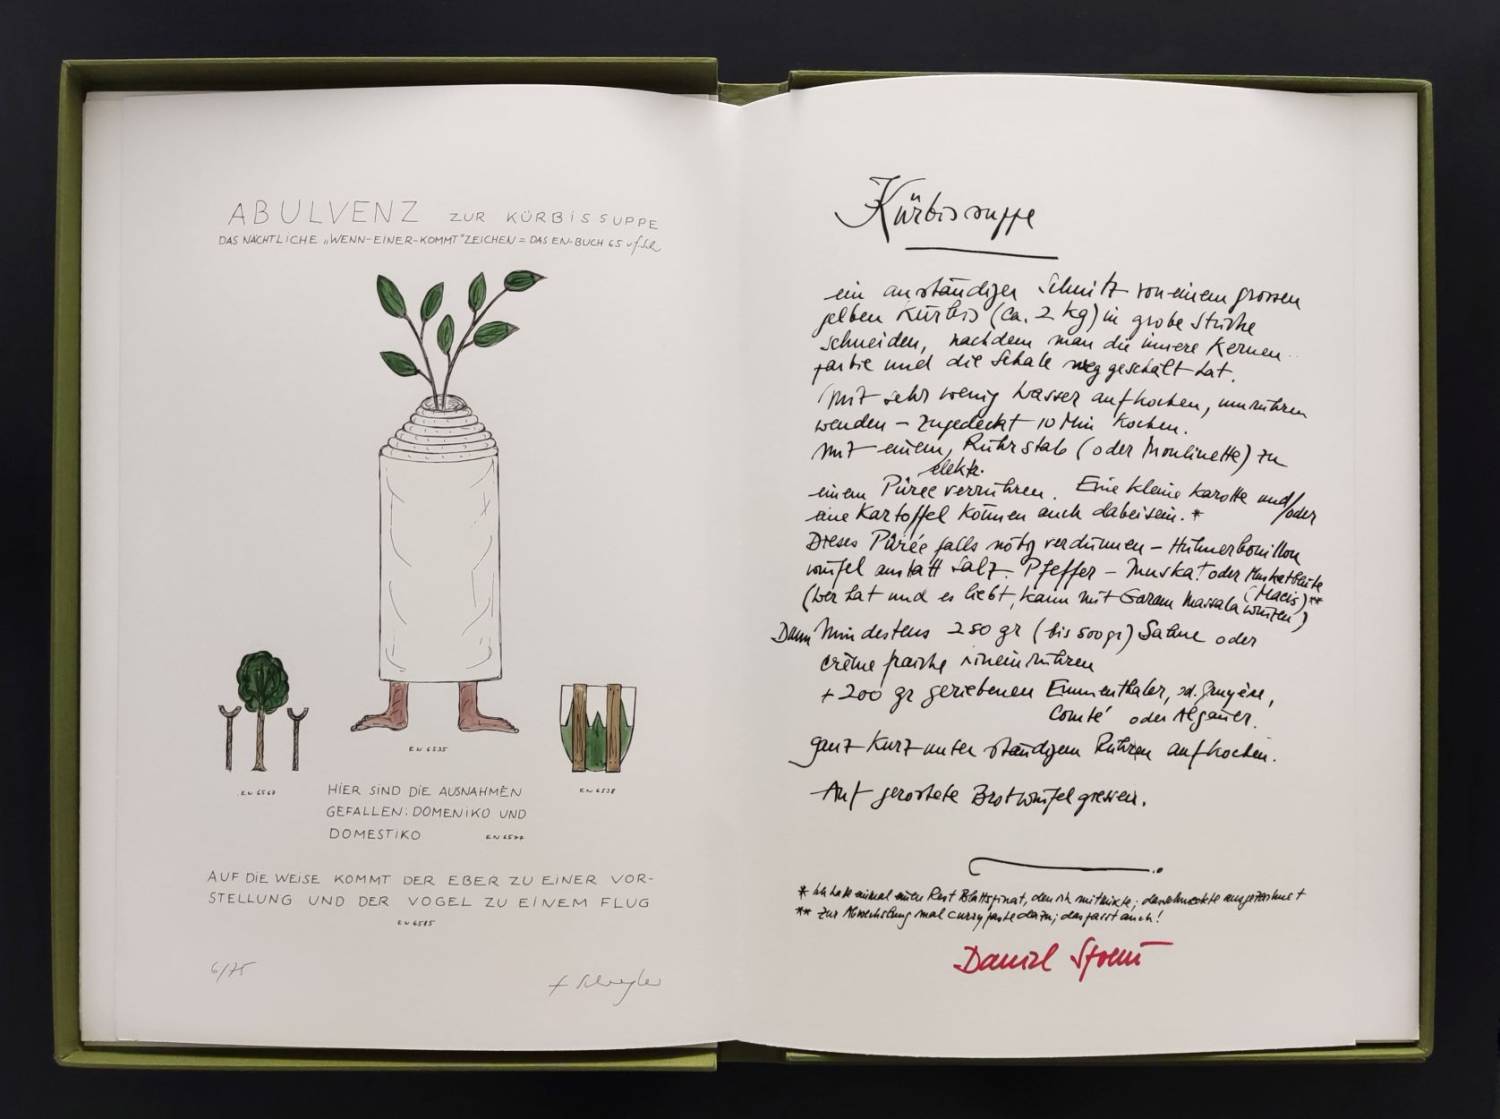 ABULVENZ ZUR KÜRBISSUPPE
DAS NÄCHTLICHE „WENN-EINER-KOMMT"ZEICHEN = DAS EN-BUCH 65
EN 6535
EN 6567
EN 6538
HIER SIND DIE AUSNAHMEN
GEFALLEN: DOMENIKO UND
DOMESTIKO EN 6577
AUF DIE WEISE KOMMT DER EBER ZU EINER VOR-
STELLUNG UND DER VOGEL ZU EINEM FLUG
EN 6585
6/75
Kürbissuppe
ein anständiger Schnitz von einem grossen
gelben Kürbis (ca. 2 kg) in grobe Stücke
schneiden, nachdem man die innere Kernen-
partie und die Schale weggeschält hat.
Mit sehr wenig Wasser aufkochen, umrühren
wenden – zugedeckt 10 Min kochen.
Mit einem, Rührstab (oder Moulinette) zu
elektr.
einem Püree verrühren. Eine kleine Karotte und/oder
eine Kartoffel können auch dabei sein. *
Dieses Pürée falls nötig verdünnen – Hühnerbouillon
würfel anstatt Salz. Pfeffer – Muskat oder Muskatblüte
(Macis) **
(wer hat und es liebt, kann mit Garam Massala würzen)
Dann Mindestens 250 gr (bis 500 gr) Sahne oder
crème fraiche hineinrühren
+ 200 gr geriebenen Emmenthaler, od. Gruyère,
Comté oder Allgäuer.
ganz kurz unter ständigem Rühren aufkochen.
Auf geröstete Brotwürfel giessen.
* Ich hatte einmal einen Rest Blattspinat, den ich mitmixte; das schmeckte ausgezeichnet
** zur Abwechslung mal currypaste dazu; das passt auch!
Daniel Spoerri